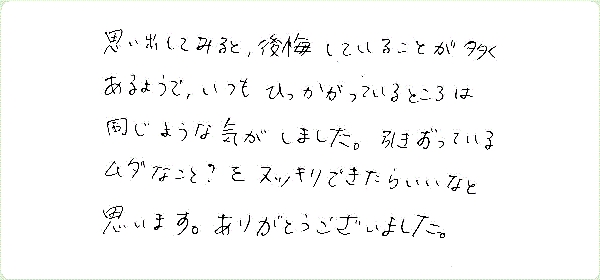 思い出してみると、後悔していることが多く
あるようで、いつもひっかかっているところは
同じような気がしました。引きずっている
ムダなこと?をスッキリできたらいいなと
思います。ありがとうございました。